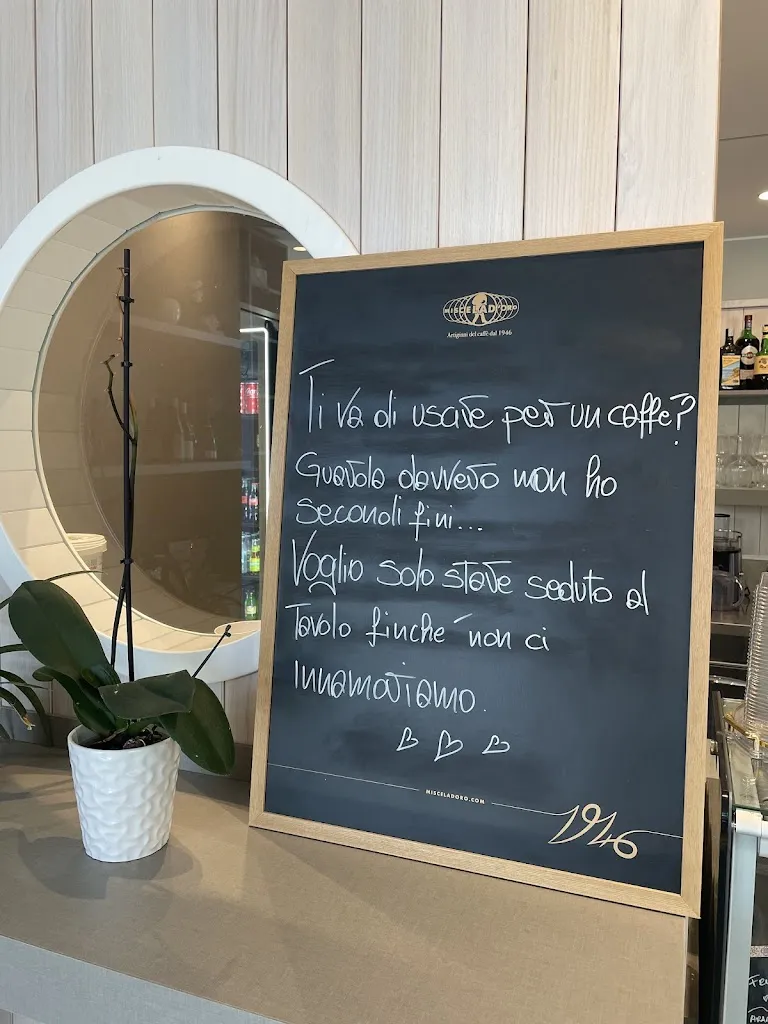 MISCELAD'ORO
Artigiani del caffè dal 1946
Ti va di uscire per un caffe?
Guarda davvero non ho
secondi fini...
Voglio solo stare seduto al
Tavolo finche' non ci
innamoriamo.
MISCELADORO.COM
1946